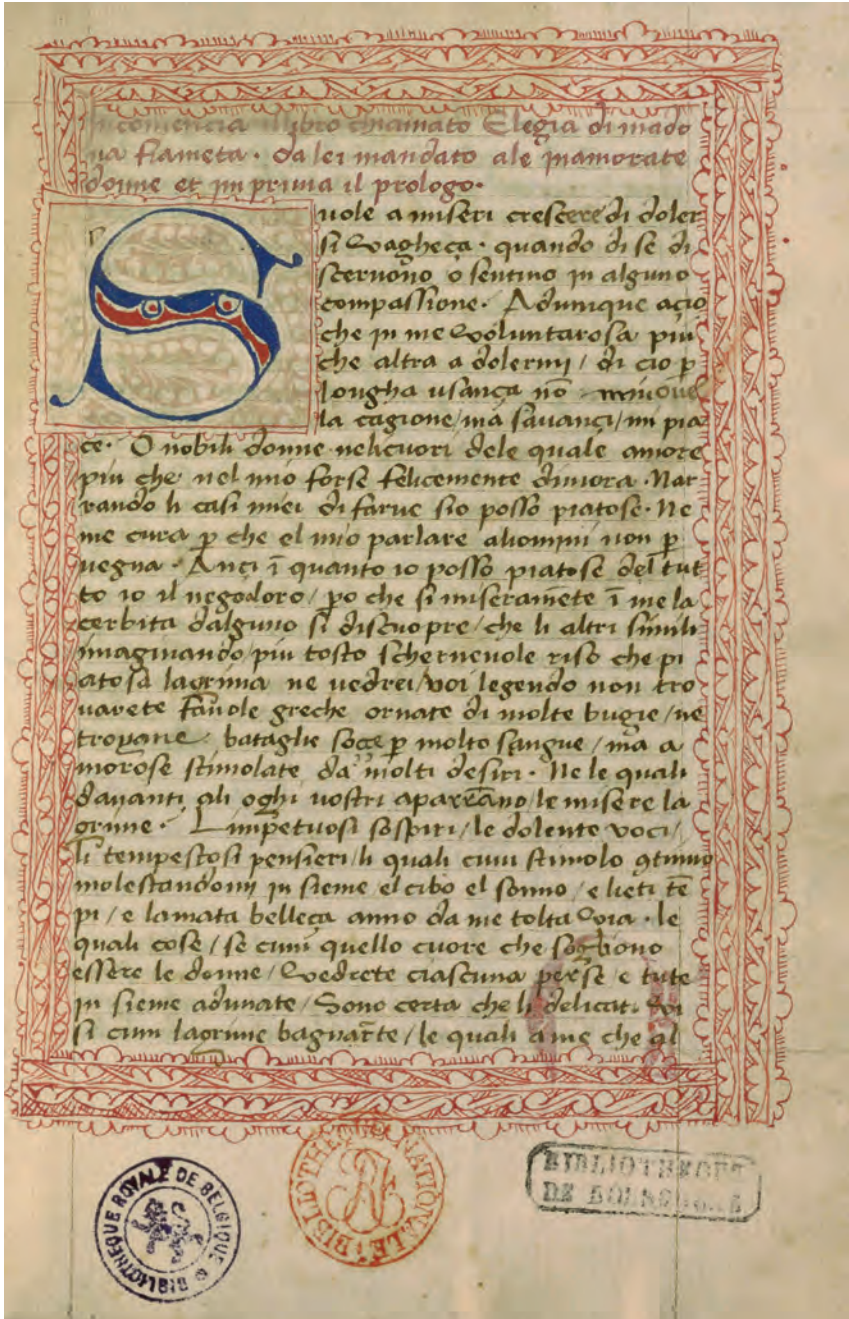 Incomencia illibro chiamato Elegia di mado
na fiameta · da lei mandato ale inamorate
donne et in prima il prologo·
S
uole a miseri crescere di doler
si vagheça · quando di se di
scernono o sentino in alguno
compassione · Adumque acio
che in me voluntarosa piu
che altra a dolermi / di cio p
longha usança nō
la cagione / ma savançi / mi pia
ce · O nobili donne nelicuori dele quale amore
piu che nel mio forse felicemente dimora · Nar
rando li casi miei di farue sio posso piatose · Ne
me cura p che el mio parlare ahomini non p
uegna · Ançi ī quanto io posso piatose del tut
to io il negodoro / po che si miseramēte ī me la
cerbita dalguno si discuopre / che li altri simili
imaginando / piu tosto scherneuole riso che pi
atosa lagrima ne uedrei / voi legendo non tro
uarete fauole greche ornate di molte bugie / ne
troyane bataglie soçe p molto sangue / ma a
morose stimolate da molti desiri · Ne le quali
davanti gli oghi uostri aparerāno / le misere la
grime · Limpetuosi sospiri / le dolente voci /
li tempestosi pensieri / li quali cum stimolo 9tinuo
molestandomi in sieme el cibo el sonno / e lieti tē
pi / e lamata belleça anno da me tolta via · le
quali cose / se cum quello cuore che sogliono
essere le donne / vedrete ciascuna per se e tute
in sieme adunate / Sono certa che li delicati vi
si cum lagrime bagnarēte / le quali a me che al
BIBLIOTHÈQUE ROYALE DE BELGIQUE * BIBLIOTHEEK
BIBLIOTHEQUE NATIONALE
BIBLIOTHEQUE
DE BOURGOGNE